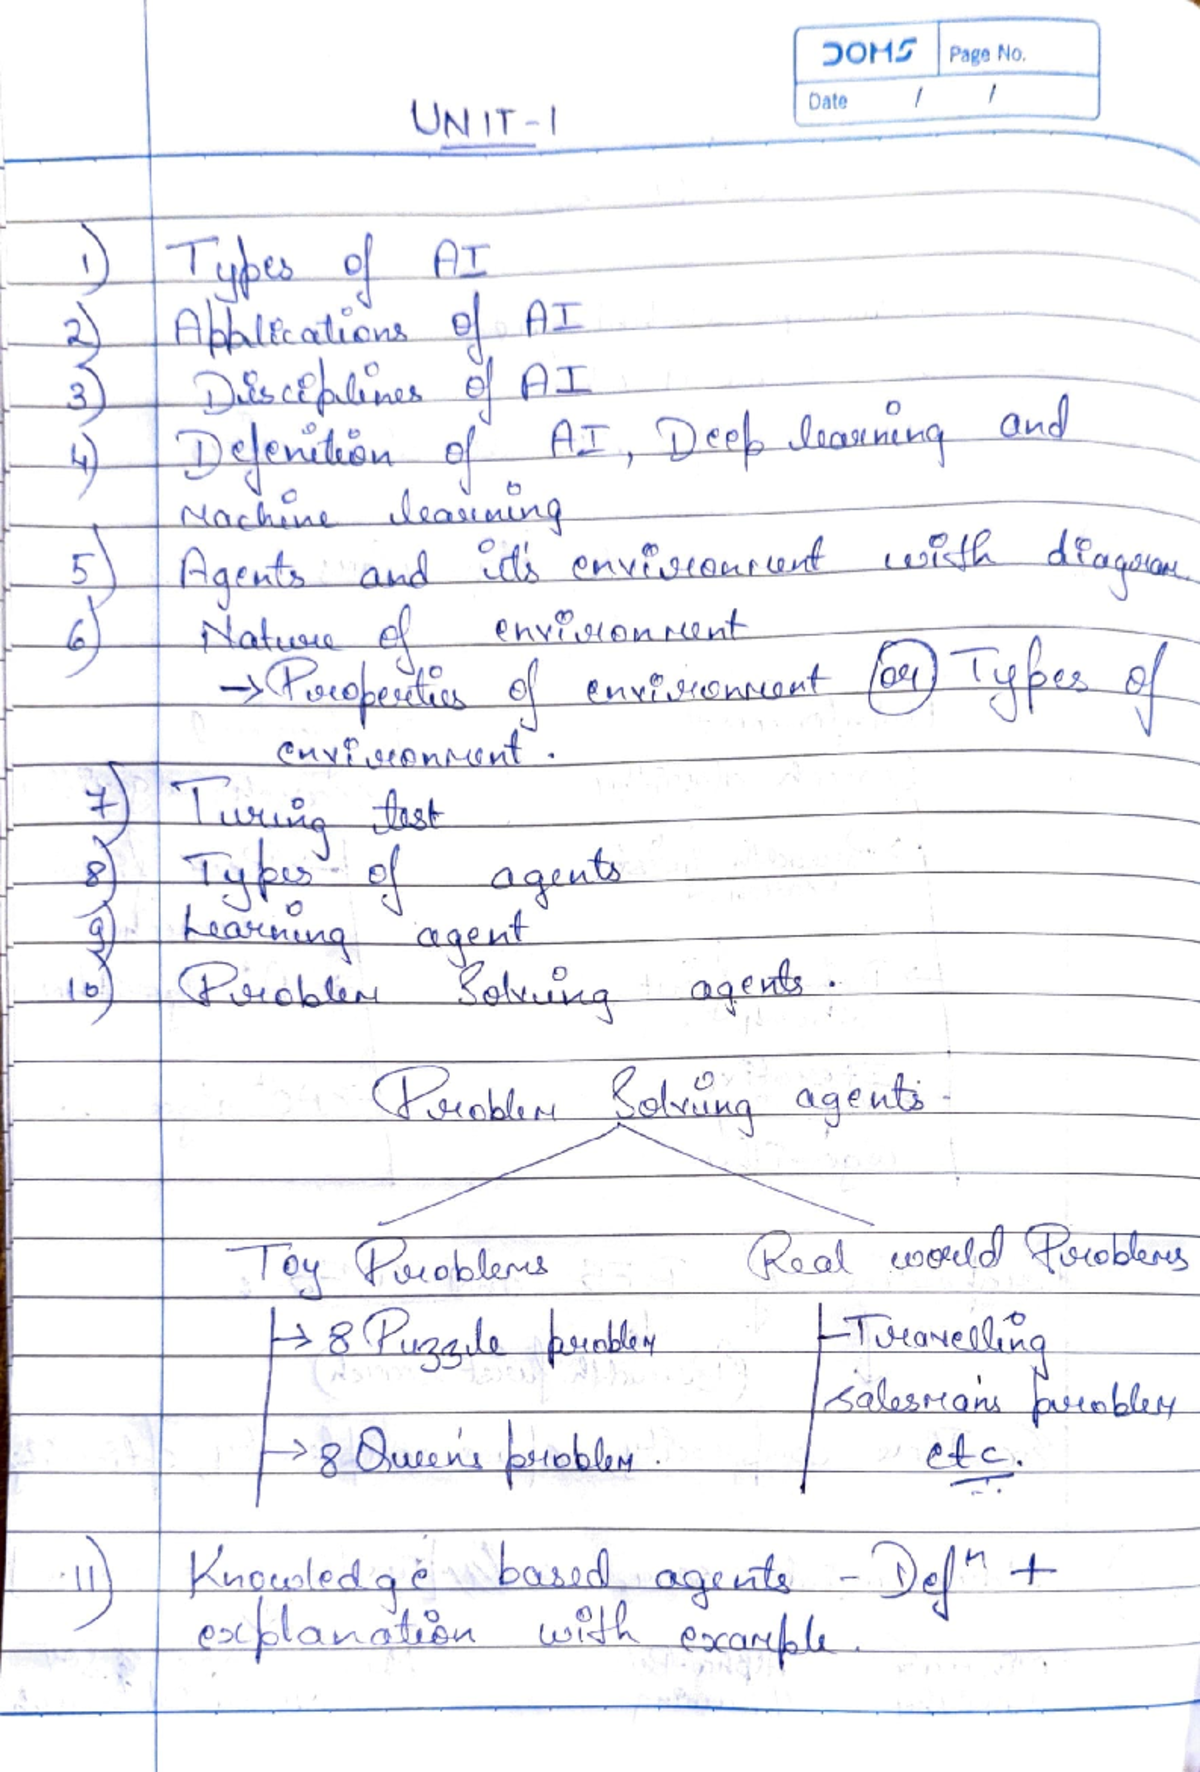 DOMS Page No.
Date / /
UNIT-1
1) Types of AI
2) Applications of AI
3) Disciplines of AI
4) Defenition of AI, Deep learning and
Machine learning
5) Agents and it's environment with diagram
6) Nature of environment
→ Properties of environment or Types of
environment.
7) Turing test
8) Types of agents
9) Learning agent
10) Problem Solving agents.
Problem Solving agents.
Toy Problems Real world Problems
→ 8 Puzzle problem Travelling
salesman's problem
→ 8 Queen's problem. etc.
11) Knowledge based agents - Defⁿ +
explanation with example.